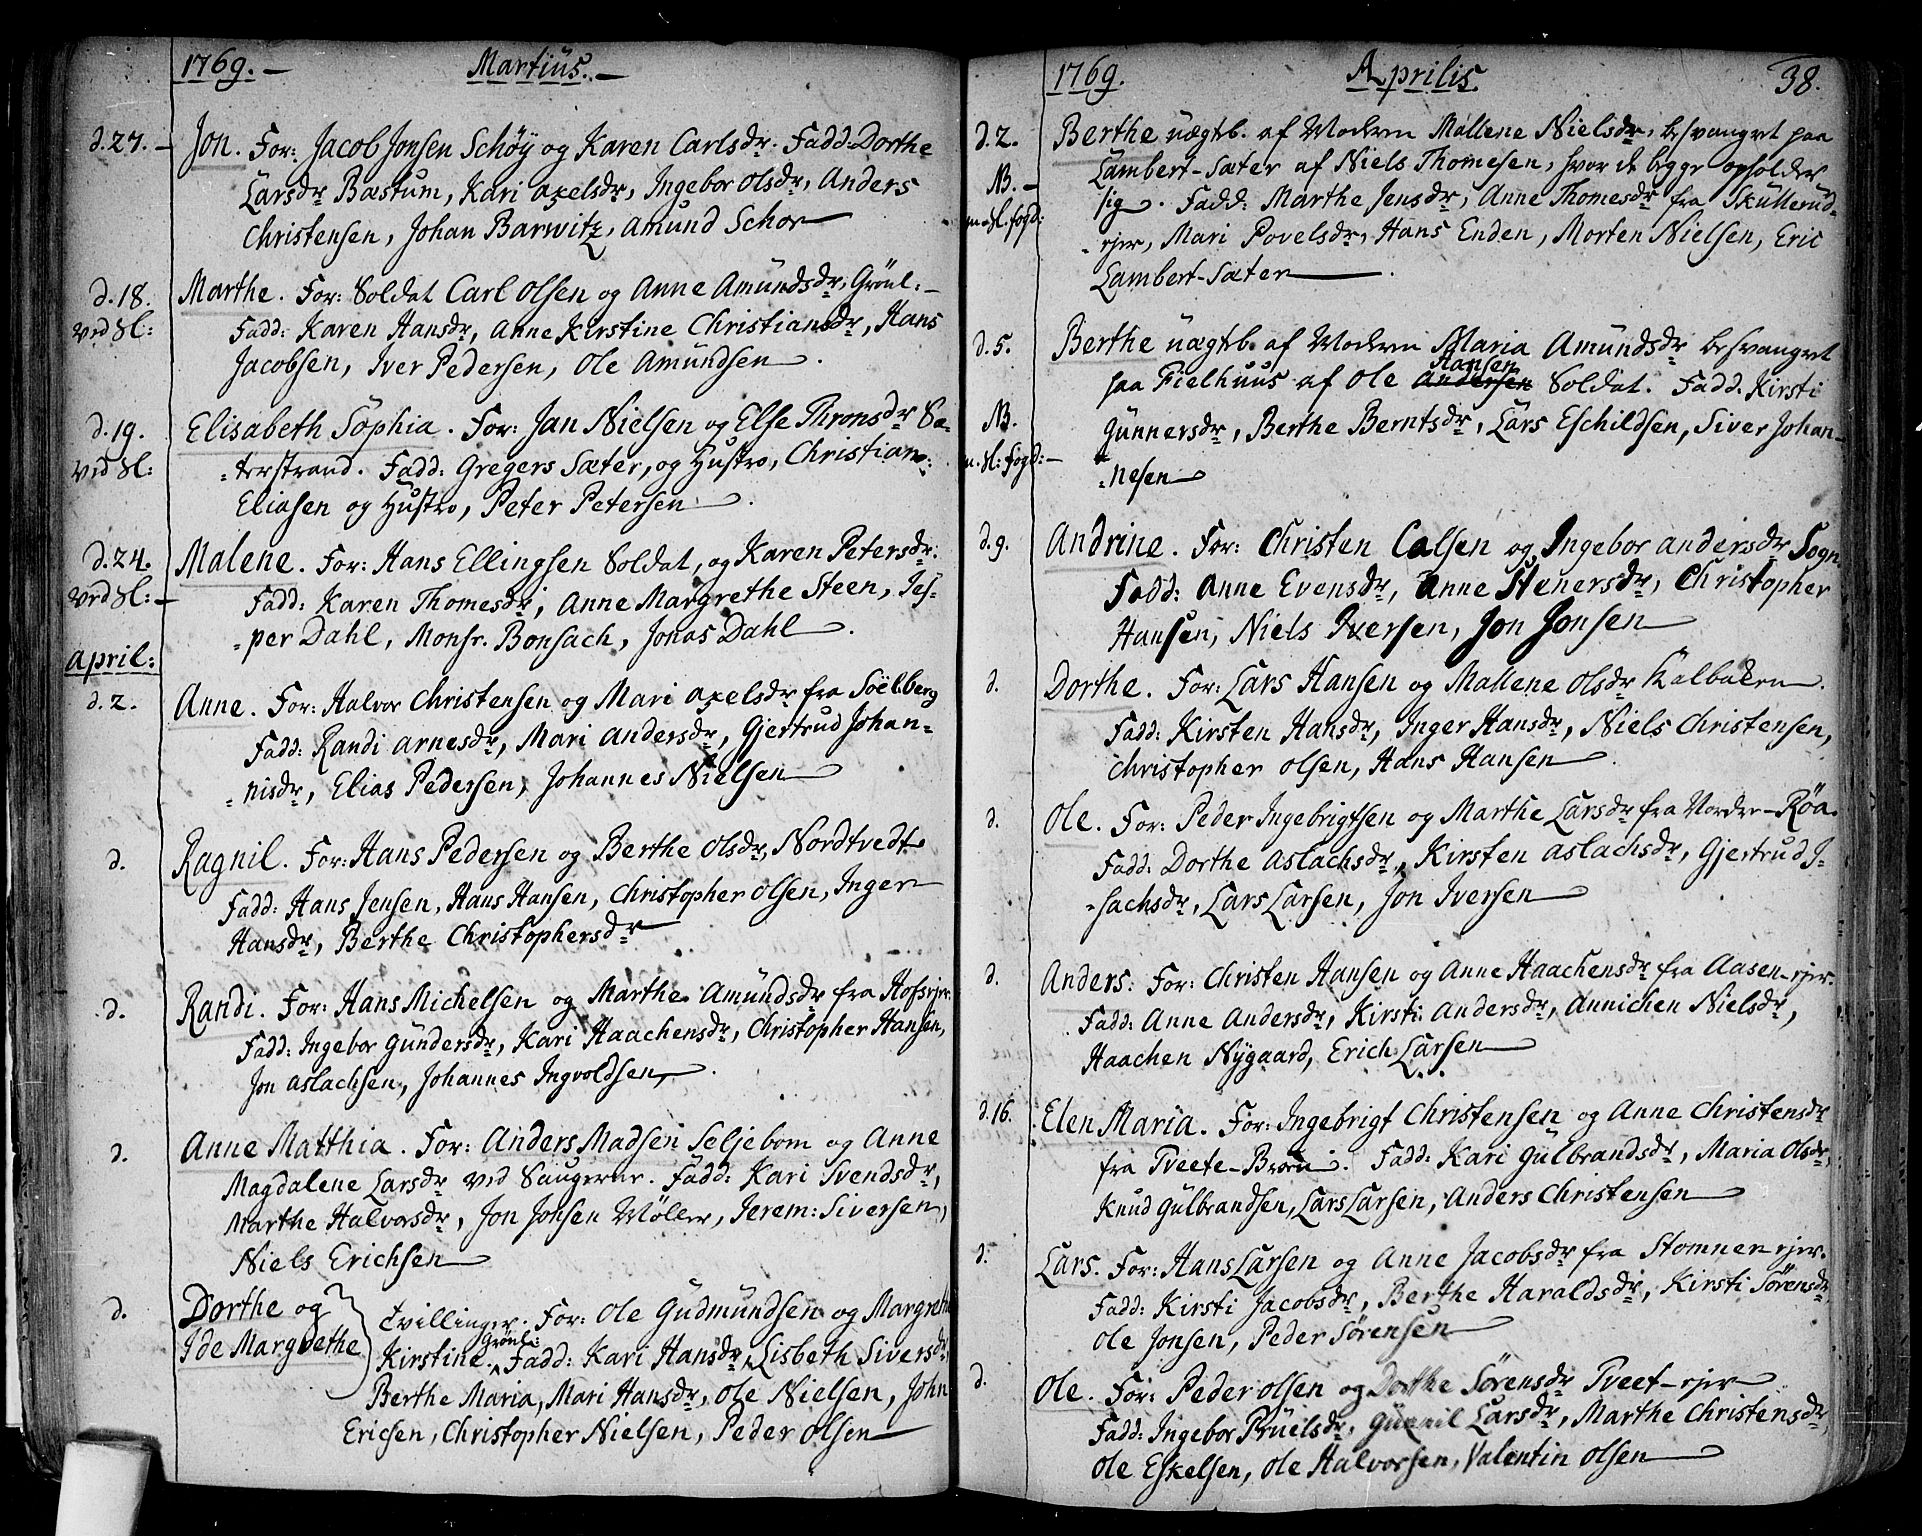 1769. — Martiüs. —
d. 27. — Jon. For: Jacob Jonsen Schöÿ og Karen Carlsdr. Fadd. Dorthe
Larsdr Bæstum, Kari Axelsdr, Ingebor Olsdr, Anders
Christensen, Johan Barwitz, Amund Schor
d. 18. Marthe. For: Soldat Carl Olsen og Anne Amündsdr, Grönl: —
ved Sl: Fadd: Karen Hansdr, Anne Kirstine Christiansdr, Hans
Jacobsen, Iver Pedersen, Ole Amündsen.
d. 19. Elisabeth Sophia. For: Jan Nielsen og Else Thronsdr Sæ-
ved Sl: terstrand. Fadd: Gregers Sæter, og Hustro, Christian
Eliasen og Hustro, Peter Petersen.
d. 24. Malene. For: Hans Ellingsen Soldat, og Karen Petersdr.
ved Sl: — Fadd: Karen Thomesdr, Anne Margrethe Steen, Jes-
per Dahl, Monsr. Bonsach, Jonas Dahl.
April:
d. 2. Anne. For: Halvor Christensen og Mari Axelsdr fra Söelberg
Fadd: Randi Arnesdr, Mari Andersdr, Gjertrud Johan-
nisdr, Elias Pedersen, Johannes Nielsen
d. Ragnil. For: Hans Pedersen og Berthe Olsdr, Nordtvedt
Fadd: Hans Jensen, Hans Hansen, Christopher Olsen, Inger
Hansdr, Berthe Christophersdr
d. Randi. For: Hans Michelsen og Marthe Amündsdr fra Hofsejer
Fadd: Ingebor Gündersdr, Kari Haachensdr, Christopher Hansen,
Jon Aslachsen, Johannes Ingvoldsen.
d. Anne Matthia. For: Anders Madsen Seljebom og Anne
Magdalene Larsdr ved Saugerne. Fadd: Kari Svendsdr,
Marthe Halvorsdr, Jon Jonsen Møller, Jerem: Siversen,
Niels Erichsen
d. Dorthe og Tvillinger. For: Ole Gudmündsen og Margrethe
Ide Margrethe Kirstine. Grönl: Fadd: Kari Hansdr, Lisbeth Siversdr,
Berthe Maria, Mari Hansdr, Ole Nielsen, John
Ericsen, Christopher Nielsen, Peder Olsen
1769. Aprilis. 38.
d. 2. Berthe uægtb. af Moderen Mallene Nielsdr, besvangret paa
NB. — Lambert-Sæter af Niels Thomesen, hvor de begge opholder
sig. Fadd: Marthe Jensdr, Anne Thomesdr fra Skullerud-
ejer, Mari Povelsdr, Hans Enden, Morten Nielsen, Eric
Lambert-Sæter.
d. 5. Berthe uægtb. af Moderen Maria Amündsdr besvangret
Hansen
paa Fielhuus af Ole Andersen Soldat. Fadd. Kirsti
NB. Günnersdr, Berthe Berntsdr, Lars Eschildsen, Siver Johan-
nesen
d. 9. Andrine. For: Christen Colsen og Ingebor Andersdr Sogn
Fadd: Anne Evensdr, Anne Stenersdr, Christopher
Hansen, Niels Iversen, Jon Jonsen
d. Dorthe. For: Lars Hansen og Mallene Olsdr Kalbakken.
Fadd: Kirsten Hansdr, Inger Hansdr, Niels Christensen,
Christopher Olsen, Hans Hansen.
d. Ole. For: Peder Ingebrigtsen og Marthe Larsdr fra Nordre-Röa.
Fadd: Dorthe Aslachsdr, Kirsten Aslachsdr, Gjertrud I-
sachsdr, Lars Larsen, Jon Iversen
d. Anders. For: Christen Hansen og Anne Haachensdr fra Aasen-ejer.
Fadd: Anne Andersdr, Kirsti Andersdr, Annichen Nielsdr,
Haachen Nygaard, Erich Larsen
d. 16. Elen Maria. For: Ingebrigt Christensen og Anne Christensdr
fra Tveete-Broen. Fadd: Kari Gülbrandsdr, Maria Olsdr,
Knud Gülbrandsen, Lars Larsen, Anders Christensen
d. Lars. For: Hans Larsen og Anne Jacobsdr fra Stomner ejer.
Fadd: Kirsti Jacobsdr, Berthe Haraldsdr, Kirsti Sörensdr,
Ole Jonsen, Peder Sörensen
d. Ole. For: Peder Olsen og Dorthe Sörensdr Tveet-ejer
Fadd: Ingebor Prüelsdr, Larsdr, Marthe Christensdr,
Ole Eskelsen, Ole Halvorsen, Valentin Olsen